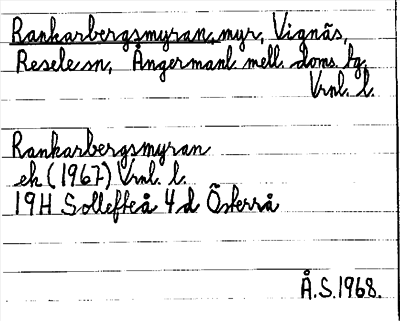 Rankarbergsmyran, myr, Vignäs,
Resele sn, Ångermanl. mell. doms. tg.
Vrnl. l.
Rankarbergsmyran
ek (1967) Vrnl. l.
19H Sollefteå 4d Österrå
Å.S. 1968.